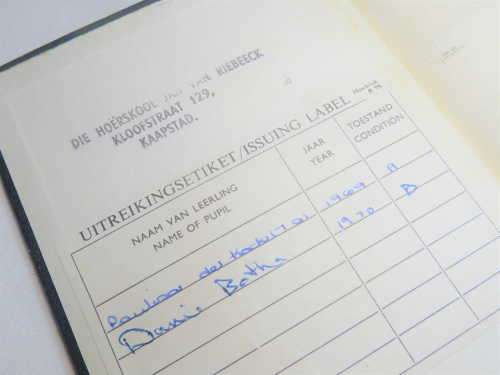 DIE HOËRSKOOL JAN VAN RIEBEECK
KLOOFSTRAAT 129,
KAAPSTAD.
UITREIKINGSETIKET/ISSUING LABEL
NAAM VAN LEERLING
NAME OF PUPIL
JAAR
YEAR
TOESTAND
CONDITION
1969 B
Danie Botha 1970 B